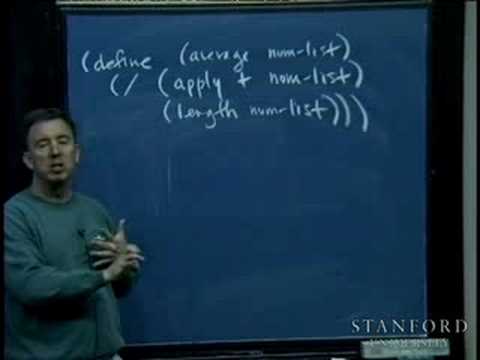 (define (average num-list)
(/ (apply + num-list)
(length num-list)))
STANFORD
UNIVERSITY